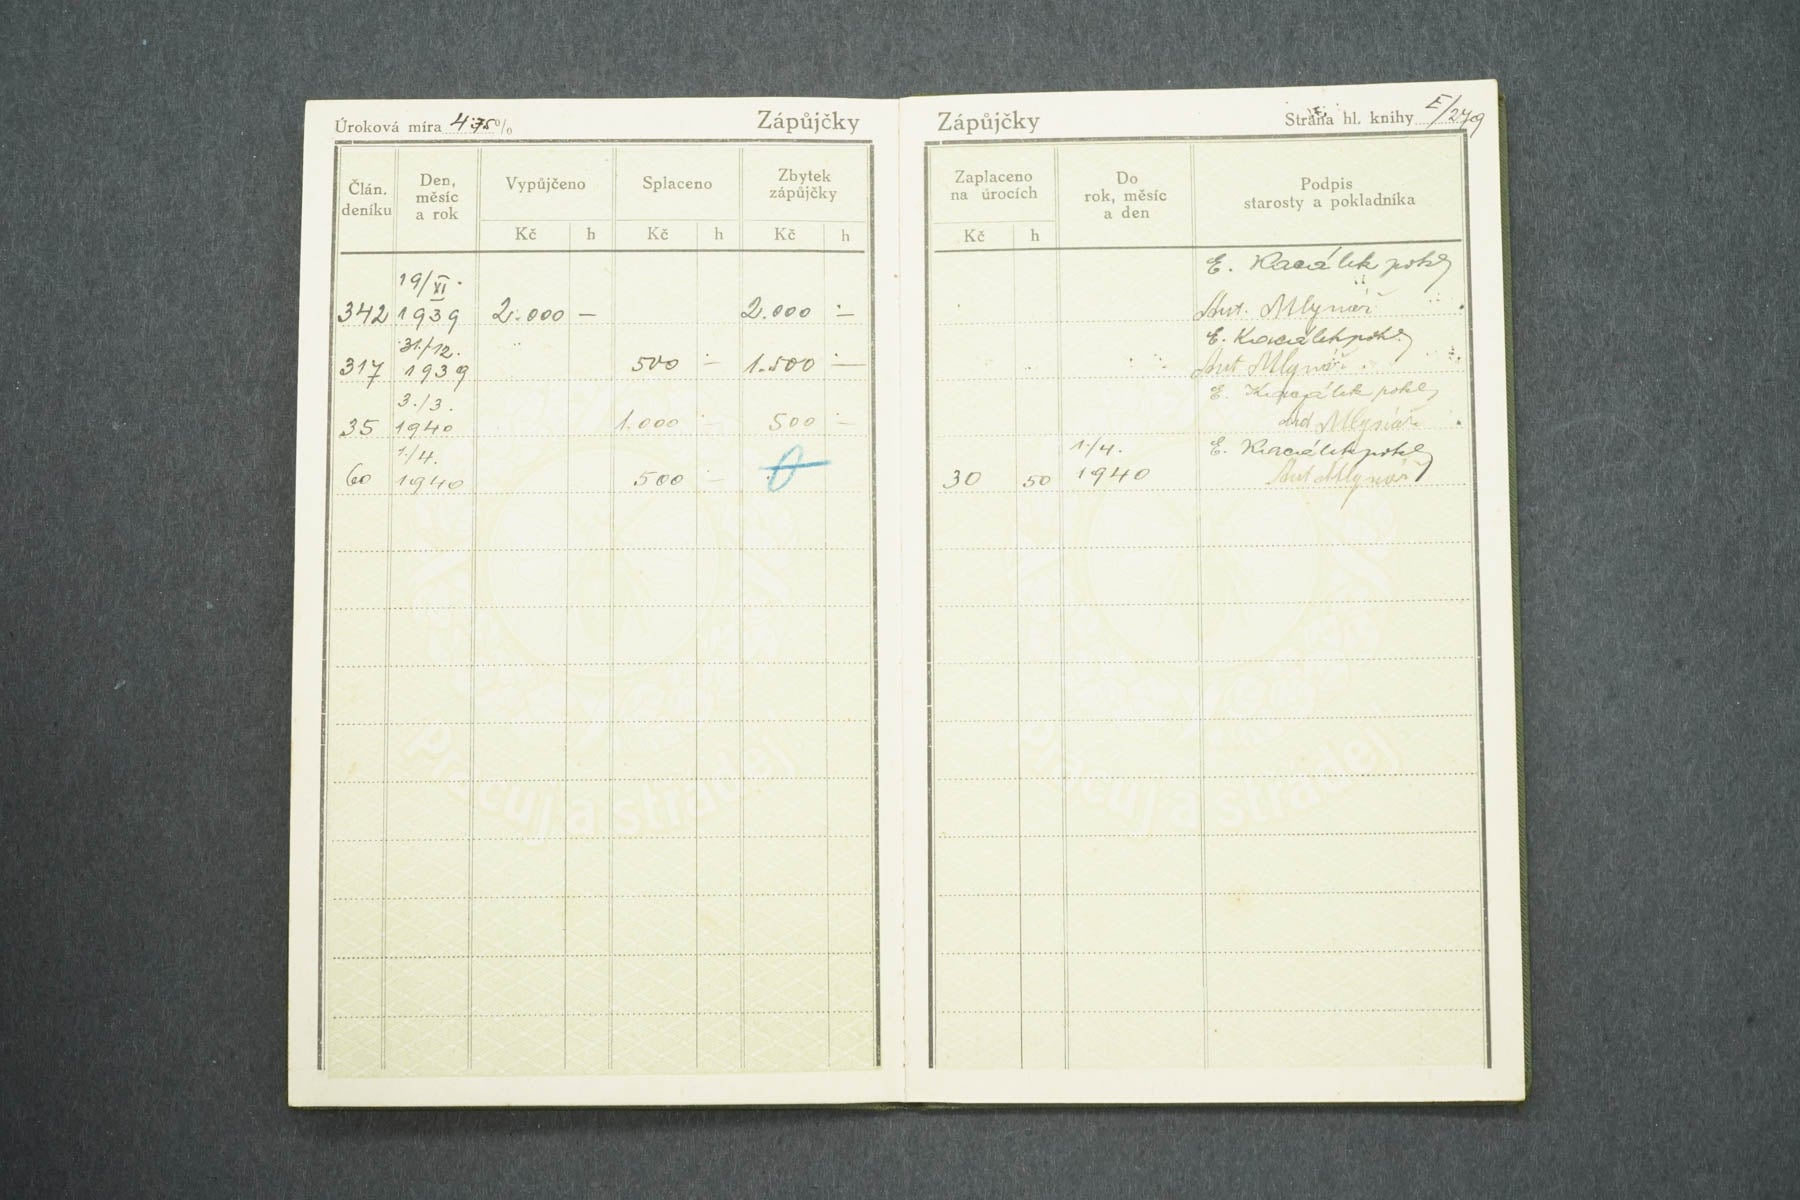 Úroková míra 4.75%
Zápůjčky
Člán. deníku
Den, měsíc a rok
Vypůjčeno
Splaceno
Zbytek zápůjčky
Kč h Kč h Kč h
19/XI.
342 1939 2.000 — 2.000 —
31./12.
317 1939 500 — 1.500 —
3./3.
35 1940 1.000 — 500 —
1./4.
60 1940 500 — 0
Pracuj a střádej
Zápůjčky
Strana hl. knihy
Zaplaceno na úrocích
Do rok, měsíc a den
Podpis starosty a pokladníka
Kč h
E. pokl
Ant. Mlynář
E. pokl.
Ant Mlynář
E. pokl
Ant Mlynář
1./4. E. pokl
30 50 1940 Ant Mlynář
Pracuj a střádej